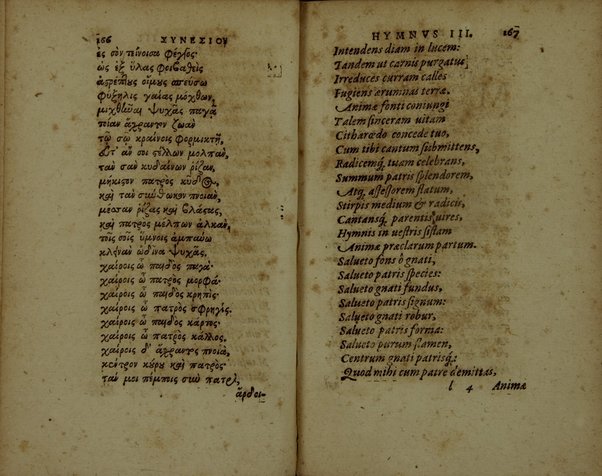 166 ΣΥΝΕΣΙΟΥ
ἐς σὸν τείνοισα φέγγος·
ὡς ἐξ ὕλας φοιβαθεὶς
ἀστρέπλους οἴμους ἀπεύσω
φύξηλις γαίας μόχθων,
μιχθεῖσαι ψυχᾶς παγᾷ
τοίαν ἄχραντον ζωὰν
τῷ σῷ κραίνοις φορμικτῇ,
ἔστ' ἂν σοι στέλλων μολπὰν,
τὰν σὰν κυδαίνων ῥίζαν,
μήκιστον πατρὸς κῦδος,
καὶ τὰν σύνθωκον πνοιὰν,
μέσσαν ῥίζας καὶ βλάστας,
καὶ πατρὸς μέλπων ἀλκὰν,
τοῖς σοῖς ὕμνοις ἀμπαύω
κλεινὰν ὠδῖνα ψυχᾶς,
χαίροις ὦ παιδὸς παγά·
χαίροις ὦ πατρὸς μορφά·
χαίροις ὦ παιδὸς κρηπίς·
χαίροις ὦ πατρὸς σφρηγίς.
χαίροις ὦ παιδὸς κάρτος·
χαίροις ὦ πατρὸς κάλλος,
χαίροις δ' ἄχραντος πνοιὰ,
κέντρον κύρου καὶ πατρὸς·
τάν μοι πέμποις σὺν πατρὶ,
ἄρδει-
HYMNVS III. 167
Intendens diam in lucem:
Tandem ut carnis purgatus
Irreduces curram calles
Fugiens ærumnas terræ.
Animæ fonti coniungi
Talem sinceram uitam
Citharœdo concede tuo,
Cum tibi cantum submittens,
Radicemq́; tuam celebrans,
Summum patris splendorem,
Atq; assessorem flatum,
Stirpis medium & radicis,
Cantansq́; parentis uires,
Hymnis in uestris sistam
Animæ præclarum partum.
Salueto fons ô gnati,
Salueto patris species:
Salueto gnati fundus,
Salueto patris signum:
Salueto gnati robur,
Salueto patris forma:
Salueto purum flamen,
Centrum gnati patrisq́;:
Quod mihi cum patre demittas,
l 4 Animæ